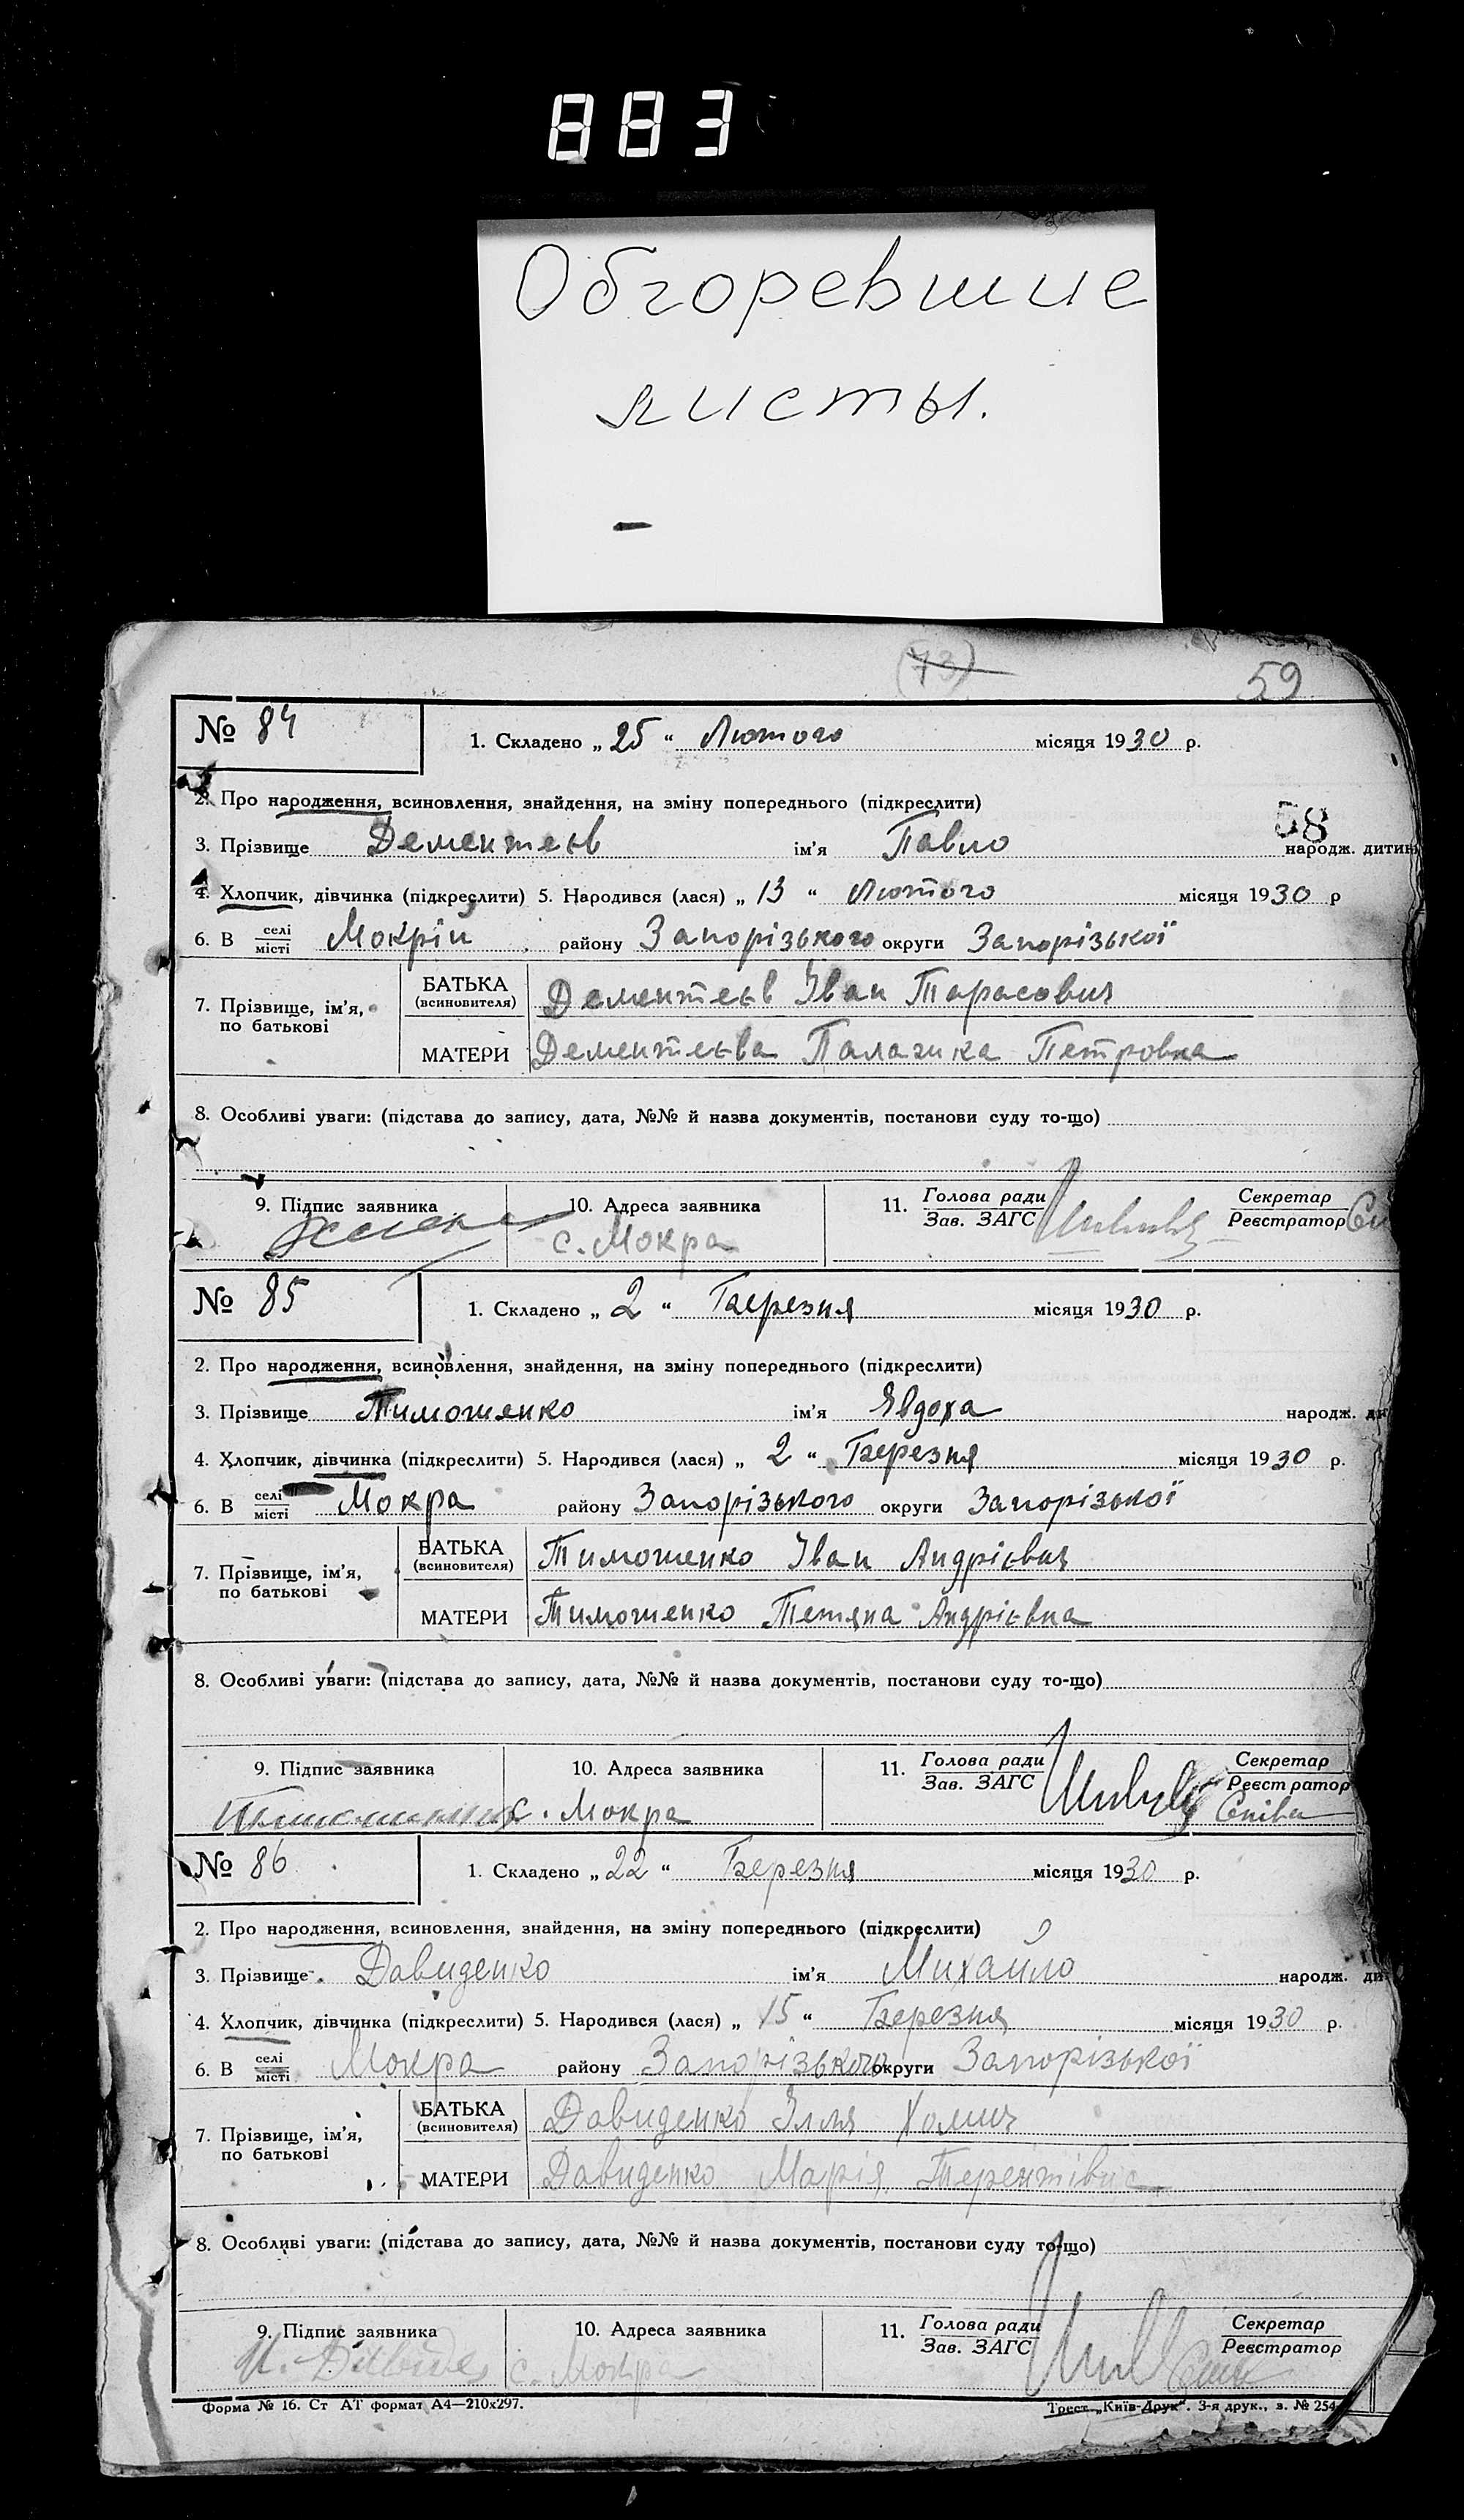 883
Обгоревшие
листы.
(73) 59
№ 84 1. Складено „ 25 “ Лютого місяця 1930 р.
2. Про народження, всиновлення, знайдення, на зміну попереднього (підкреслити)
58
3. Прізвище Дементеєв ім'я Павло народж. дитин
4. Хлопчик, дівчинка (підкреслити) 5. Народився (лася) „ 13 “ Лютого місяця 1930 р
6. В селі/місті Мокрій району Запорізького округи Запорізької
7. Прізвище, ім'я, по батькові БАТЬКА (всиновителя) Дементеєв Іван Тарасович
МАТЕРИ Дементеєва Палажка Петровна
8. Особливі уваги: (підстава до запису, дата, №№ й назва документів, постанови суду то-що)
9. Підпис заявника 10. Адреса заявника 11. Голова ради/Зав. ЗАГС Секретар/Реєстратор
с. Мокра
№ 85 1. Складено „ 2 “ Березня місяця 1930 р.
2. Про народження, всиновлення, знайдення, на зміну попереднього (підкреслити)
3. Прізвище Тимошенко ім'я Явдоха народж. ди
4. Хлопчик, дівчинка (підкреслити) 5. Народився (лася) „ 2 “ Березня місяця 1930 р.
6. В селі/місті Мокра району Запорізького округи Запорізької
7. Прізвище, ім'я, по батькові БАТЬКА (всиновителя) Тимошенко Іван Андрієвич
МАТЕРИ Тимошенко Тетяна Андрієвна
8. Особливі уваги: (підстава до запису, дата, №№ й назва документів, постанови суду то-що)
9. Підпис заявника 10. Адреса заявника 11. Голова ради/Зав. ЗАГС Секретар/Реєстратор
с. Мокра
№ 86 1. Складено „ 22 “ Березня місяця 1930 р.
2. Про народження, всиновлення, знайдення, на зміну попереднього (підкреслити)
3. Прізвище Давиденко ім'я Михайло народж. ди
4. Хлопчик, дівчинка (підкреслити) 5. Народився (лася) „ 15 “ Березня місяця 1930 р.
6. В селі/місті Мокра району Запорізького округи Запорізької
7. Прізвище, ім'я, по батькові БАТЬКА (всиновителя) Давиденко Ілля Хомич
МАТЕРИ Давиденко Марія Терентівна
8. Особливі уваги: (підстава до запису, дата, №№ й назва документів, постанови суду то-що)
9. Підпис заявника 10. Адреса заявника 11. Голова ради/Зав. ЗАГС Секретар/Реєстратор
с. Мокра
Форма № 16. Ст АТ формат А4—210х297. Трест „Київ-Друк“. 3-я друк., з. № 254